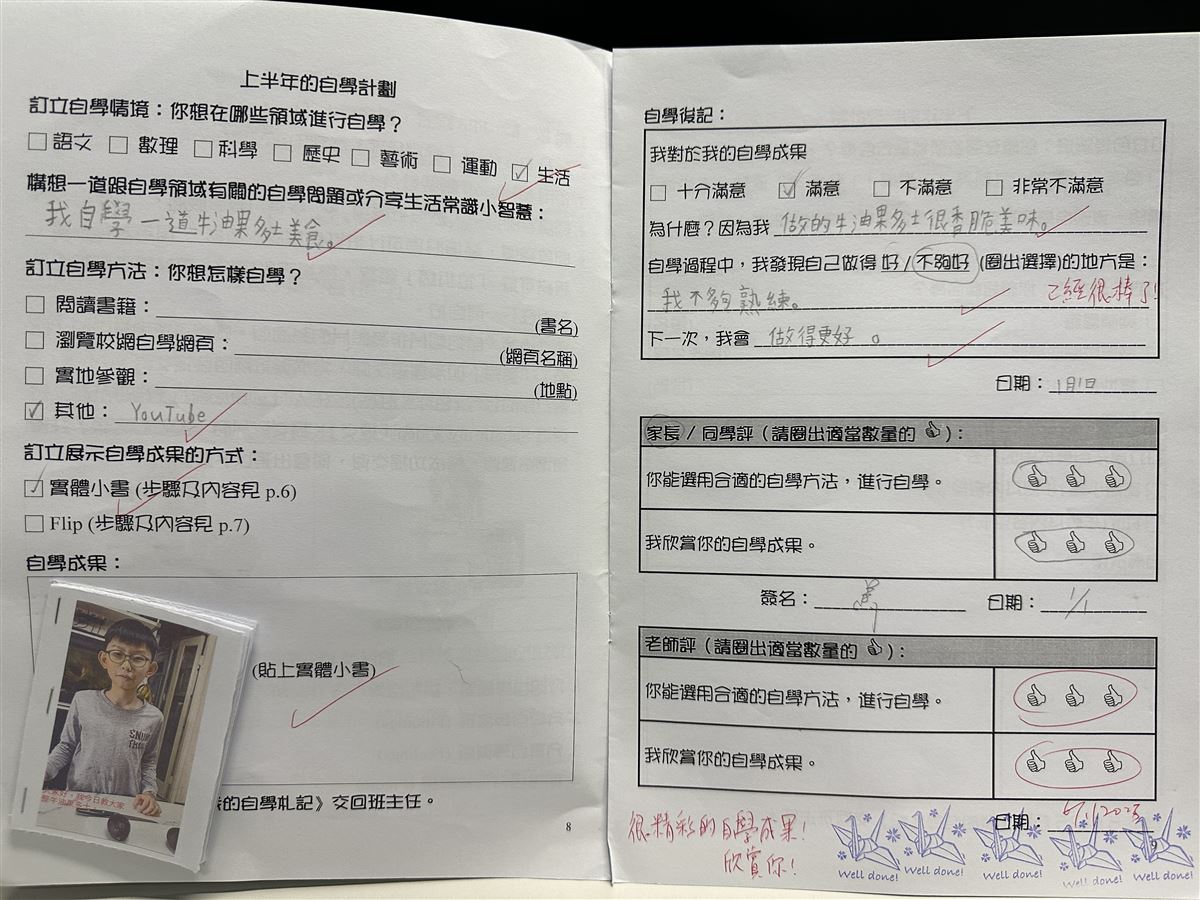 上半年的自學計劃
訂立自學情境：你想在哪些領域進行自學？
□語文 □ 數理 □科學 □ 歷史 □ 藝術 □ 運動 ☑ 生活
構想一道跟自學領域有關的自學問題或分享生活常識小智慧：
我自學一道牛油果多士美食。
訂立自學方法：你想怎樣自學？
□ 閱讀書籍：(書名)
□ 瀏覽校網自學網頁：(網頁名稱)
□ 實地參觀：(地點)
☑ 其他：YouTube
訂立展示自學成果的方式：
☑ 實體小書 (步驟及內容見 p.6)
□ Flip (步驟及內容見 p.7)
自學成果：
(貼上實體小書)
SNOW
家好，我今日教大家
整牛油果多士
的自學札記》交回班主任。
8
自學後記：
我對於我的自學成果
□ 十分滿意 ☑ 滿意 □ 不滿意 □ 非常不滿意
為什麼？因為我 做的牛油果多士很香脆美味。
自學過程中，我發現自己做得 好 / 不夠好 (圈出選擇)的地方是：
我不夠熟練。 已經很棒了!
下一次，我會 做得更好。
日期：1月1日
家長 / 同學評（請圈出適當數量的 👍）：
你能選用合適的自學方法，進行自學。 👍 👍 👍
我欣賞你的自學成果。 👍 👍 👍
簽名： 日期：1/1
老師評（請圈出適當數量的 👍）：
你能選用合適的自學方法，進行自學。 👍 👍 👍
我欣賞你的自學成果。 👍 👍 👍
日期：6/1/2025
很精彩的自學成果!
欣賞你!
Well done! Well done! Well done! Well done! Well done!
9